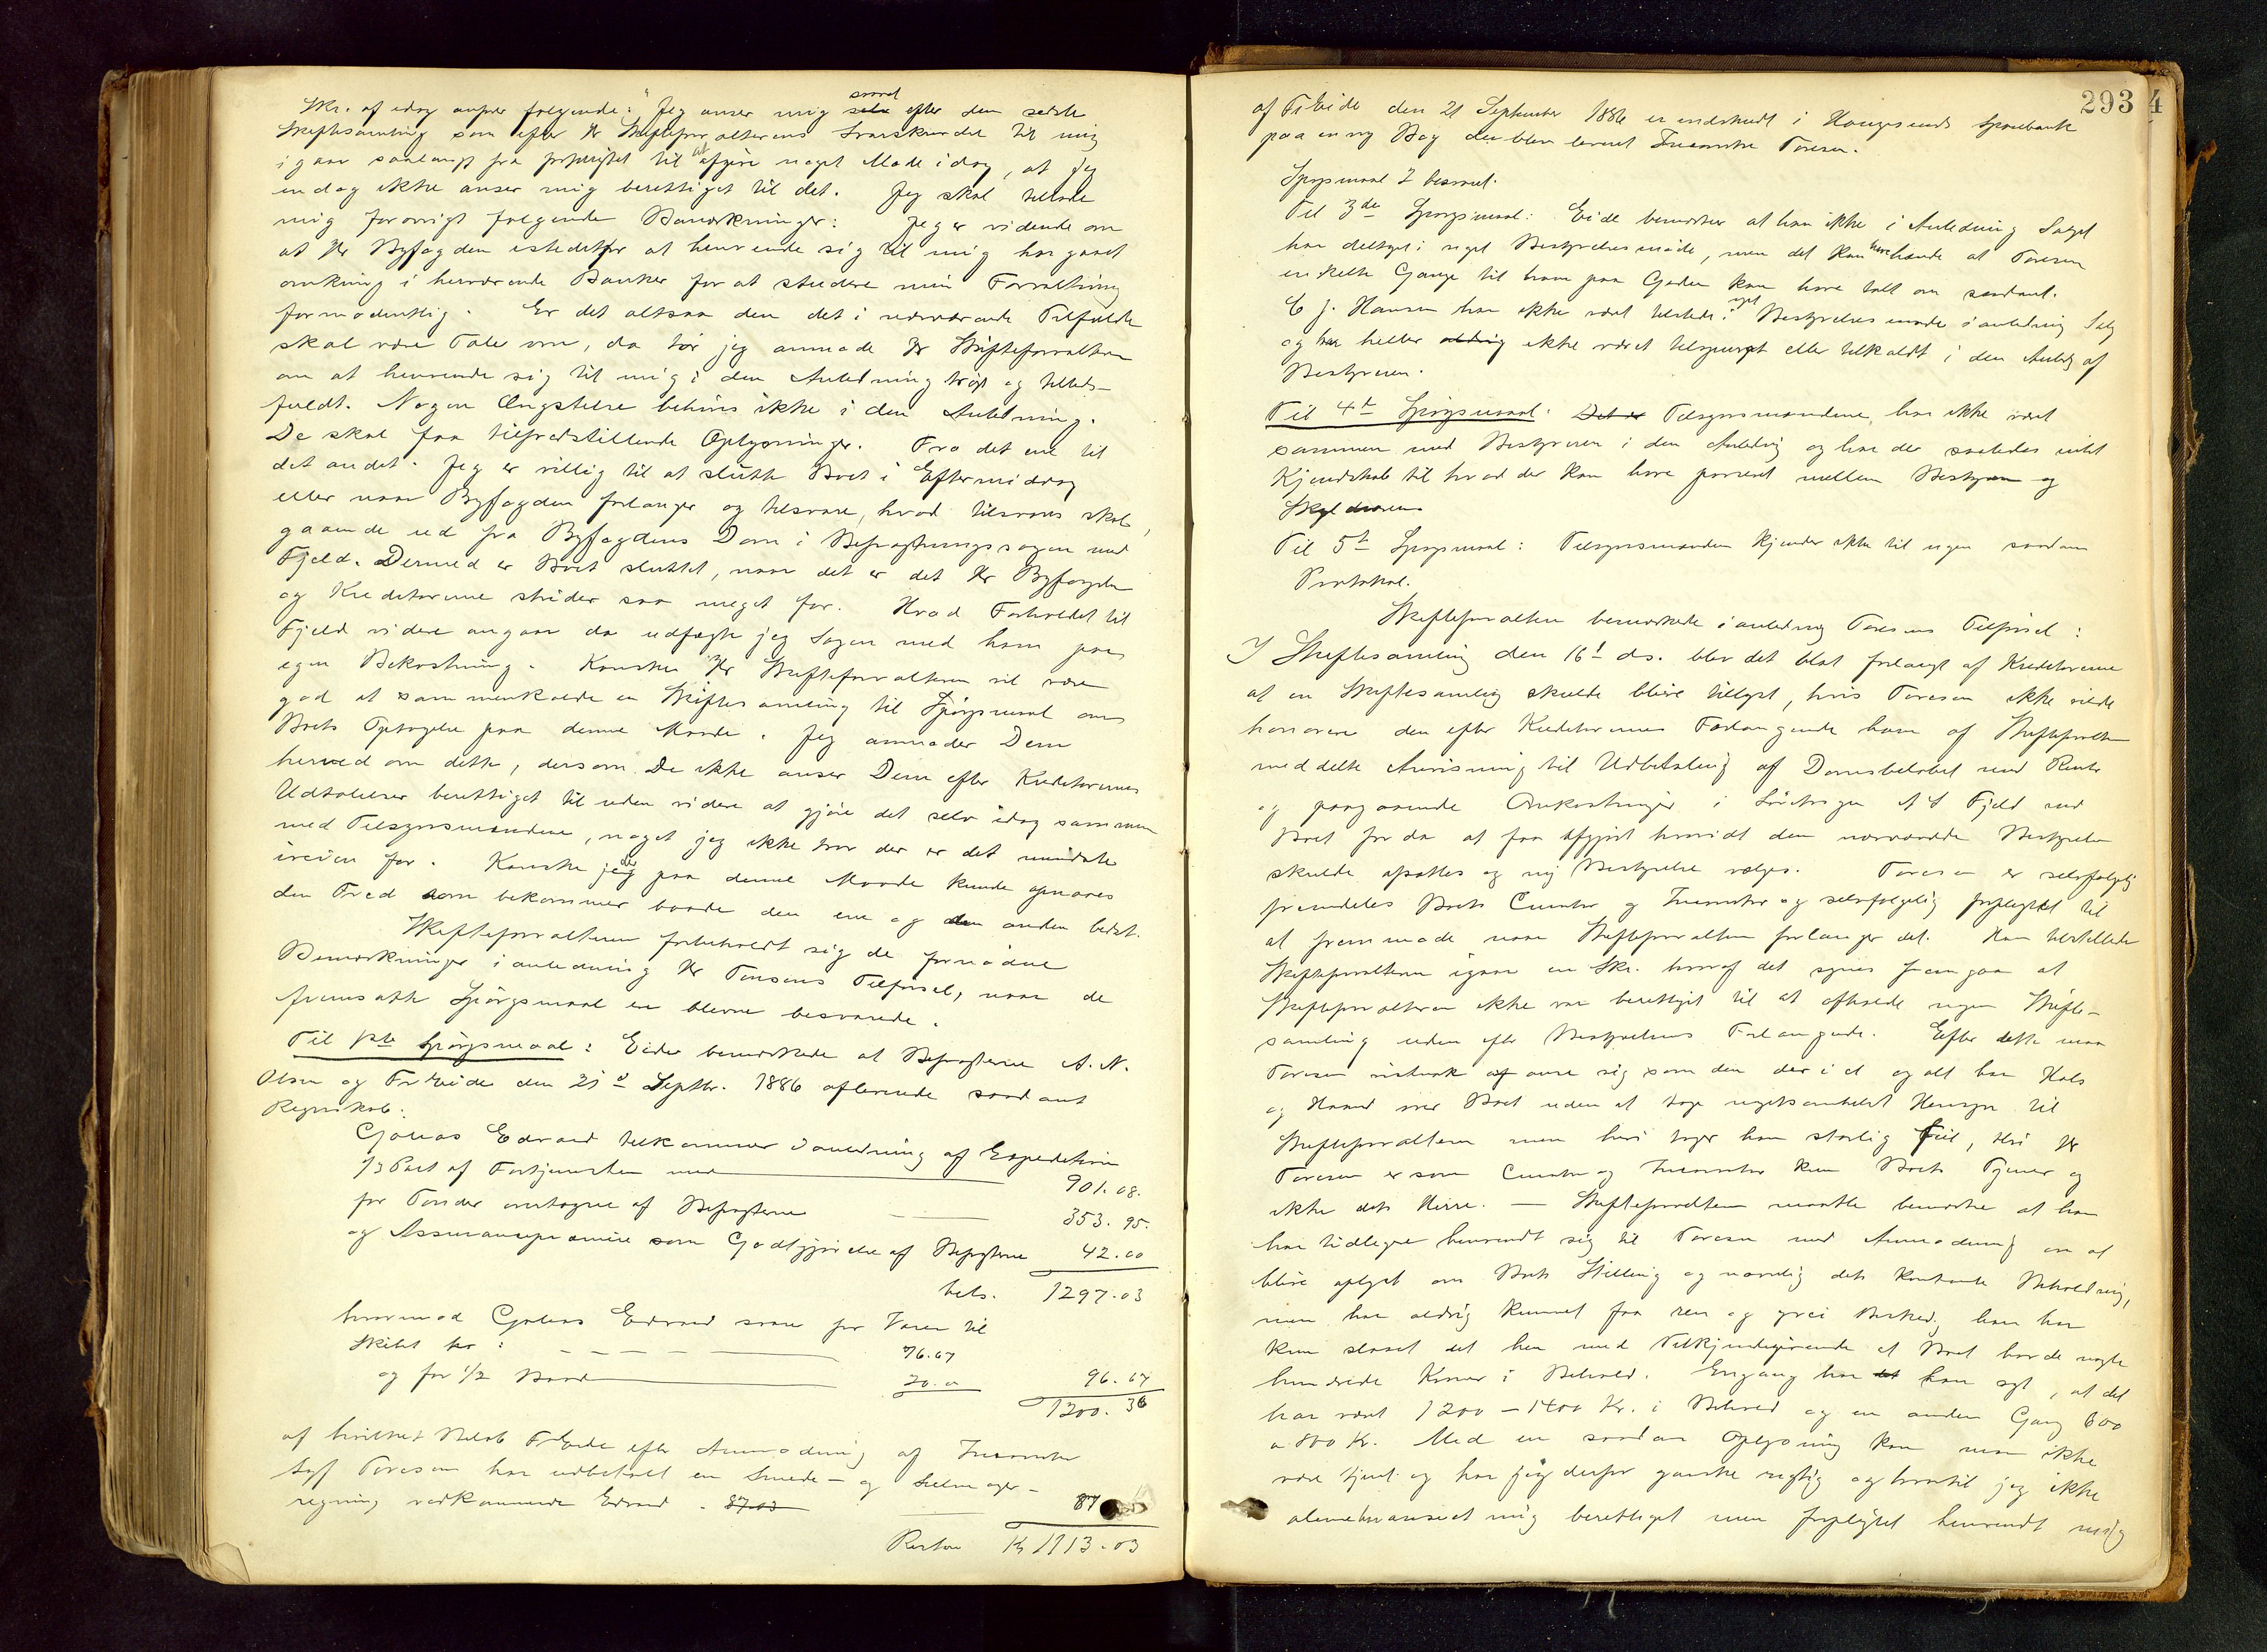 Skr. af idag anfører følgende: "Jeg anser mig saavel efter den sidste
Skiftesamling som efter Hr Skifteforvalterens Svarskrivelse til mig
igaar saalangt fra forpligtet til at afgive noget Møde idag, at jeg
endog ikke anser mig berettiget til det. Jeg skal tillade
mig forøvrigt følgende Bemærkninger: Jeg er vidende om
at Hr Byfogden istedetfor at henvende sig til mig har gaaet
omkring i herværende Banker for at studere min Forvaltning
formodentlig. Er det altsaa den det i nærværende Tilfælde
skal være Tale om, da tør jeg anmode Hr Skifteforvalteren
om at henvende sig til mig i den Anledning trøst og tillids-
fuldt. Nogen Ængstelse behøves ikke i den Anledning.
De skal faa tilfredstillende Oplysninger. Fra det ene til
det andet. Jeg er villig til at slutte Boet i Eftermiddag
eller naar Byfogden forlanger og tilsvare, hvad tilsvares skal,
gaaende ud fra Byfogdens Dom i Befragtningssagen med
Fjeld. Dermed er Boet sluttet, naar det er det Hr Byfogden
og Kreditorerne strider saa meget for. Hvad Forholdet til
Fjeld videre angaar da udfægte jeg Sagen med ham paa
egen Bekostning. Kanske Hr Skifteforvalteren vil være
god at sammenkalde en Skiftesamling til Spørgsmaal om
Boets Optagelse paa denne Maade. Jeg anmoder Dem
herved om dette, dersom De ikke anser Dem efter Kreditorernes
Udtalelser berettiget til uden videre at gjøre det selv idag sammen
med Tilsynsmændene, noget jeg ikke tror der er det mindste
iveien for. Kanske der paa denne Maade kunde opnaaes
den Fred som bekommer baade den ene og den anden bedst.
Skifteforvalteren forbeholdt sig de fornødne
Bemærkninger i anledning Hr Toresens Tilførsel, naar de
fremsatte Spørgsmaal er blevne besvarede.
Til 1ste Spørgsmaal: Eide bemærkede at Befragterne A. N.
Olsen og Fr Eide den 21de Septbr. 1886 afleverede saadant
Regnskab:
Galeas Edvard tilkommer i anledning af Expedition
1/3 Part af Fortjenesten med 901.08.
for Tønder overtagne af Befragterne 353.95.
og Assurancepræmie som Godtgjørelse af Befragterne 42.00
tils. 1297.03
hvormod Galeas Edvard svare for Varer til
Skibet kr: 76.67
og for 1/2 Baad 20.00 96.67
1200.36
af hvilket Beløb Fr Eide efter Anmodning af Incassator
Toresen har udbetalt en Smede- og Seilmager-
regning vedkommende Edvard. 87.03 87
Resten Kr 1113.03
293 4
af Fr Eide den 21 September 1886 er indskudt i Haugesunds Sparebank
paa en ny Bog der blev leveret Incassator Toresen.
Spørgsmaal 2 besvaret.
Til 3de Spørgsmaal: Eide bemærker at han ikke i Anledning Salget
har deltaget i noget Bestyrelsesmøde, men det kan have hændt at Toresen
enkelte Gange til ham paa Gaden kan have talt om saadant.
C J. Hansen har ikke været tilstede i noget Bestyrelsesmøde i anledning Salg
og har heller aldrig ikke været tilspurgt eller tilkaldt i den Anledg af
Bestyreren.
Til 4de Spørgsmaal: Det er Tilsynsmændene har ikke været
sammen med Bestyreren i den Anledng og har de saaledes intet
Kjendskab til hvad der kan have passeret mellem Bestyren og
Skyldneren
Til 5te Spørgsmaal: Tilsynsmænden kjender ikke til nogen saadan
Protokol.
Skifteforvalten bemærkede i anledng Toresens Tilførsel:
I Skiftesamling den 16de ds. blev det blot forlangt af Kreditorerne
at en Skiftesamling skulde blive tillyst, hvis Toresen ikke vilde
honorere den efter Kreditorernes Forlangende ham af Skifteforvalten
meddelte Anvisning til Udbetaling af Domsbeløbet med Renter
og paagaaende Omkostninger i Søretssagen Fjeld mod
Boet for da at faa afgjort hvorvidt den nærværende Bestyrelse
skulde afsættes og ny Bestyrelse vælges. Toresen er selvfølgelig
fremdeles Boets Curator og Incassator og selvfølgelig forpligtet til
at fremmøde naar Skifteforvalten forlanger det. Han tilstillede
Skifteforvalteren igaar en Skr. hvoraf det synes fremgaa at
Skifteforvalteren ikke var berettiget til at afholde nogen Skifte-
samling uden efter Bestyrelsens Forlangende. Efter dette maa
Toresen anse sig som den der i et og alt har Hals
og Haand over Boet uden at tage Hensyn til
Skifteforvalteren men heri tager han storlig feil, thi Hr
Toresen er som Curator og Incassator kun Boets Tjener og
ikke dets Herre. — Skifteforvalteren maatte bemærke at han
har tidligere henvendt sig til Toresen med Anmodning om at
blive oplyst om Boets Stilling og navnlig dets kontante Beholdning,
men har aldrig kunnet faa ren og grei Besked, han har
kun slaaet det hen med Tilkjendegivende at Boet havde nogle
hundrede Kroner i Behold. Engang har det han sagt, at det
har været 1200 — 1400 Kr. i Behold og en anden Gang 600
a 800 Kr. Med en saadan Oplysning kan man ikke
være tjent og har jeg derfor ganske rigtig og hvortil jeg ikke
alene har anseet mig berettiget men forpligtet henvendt mig